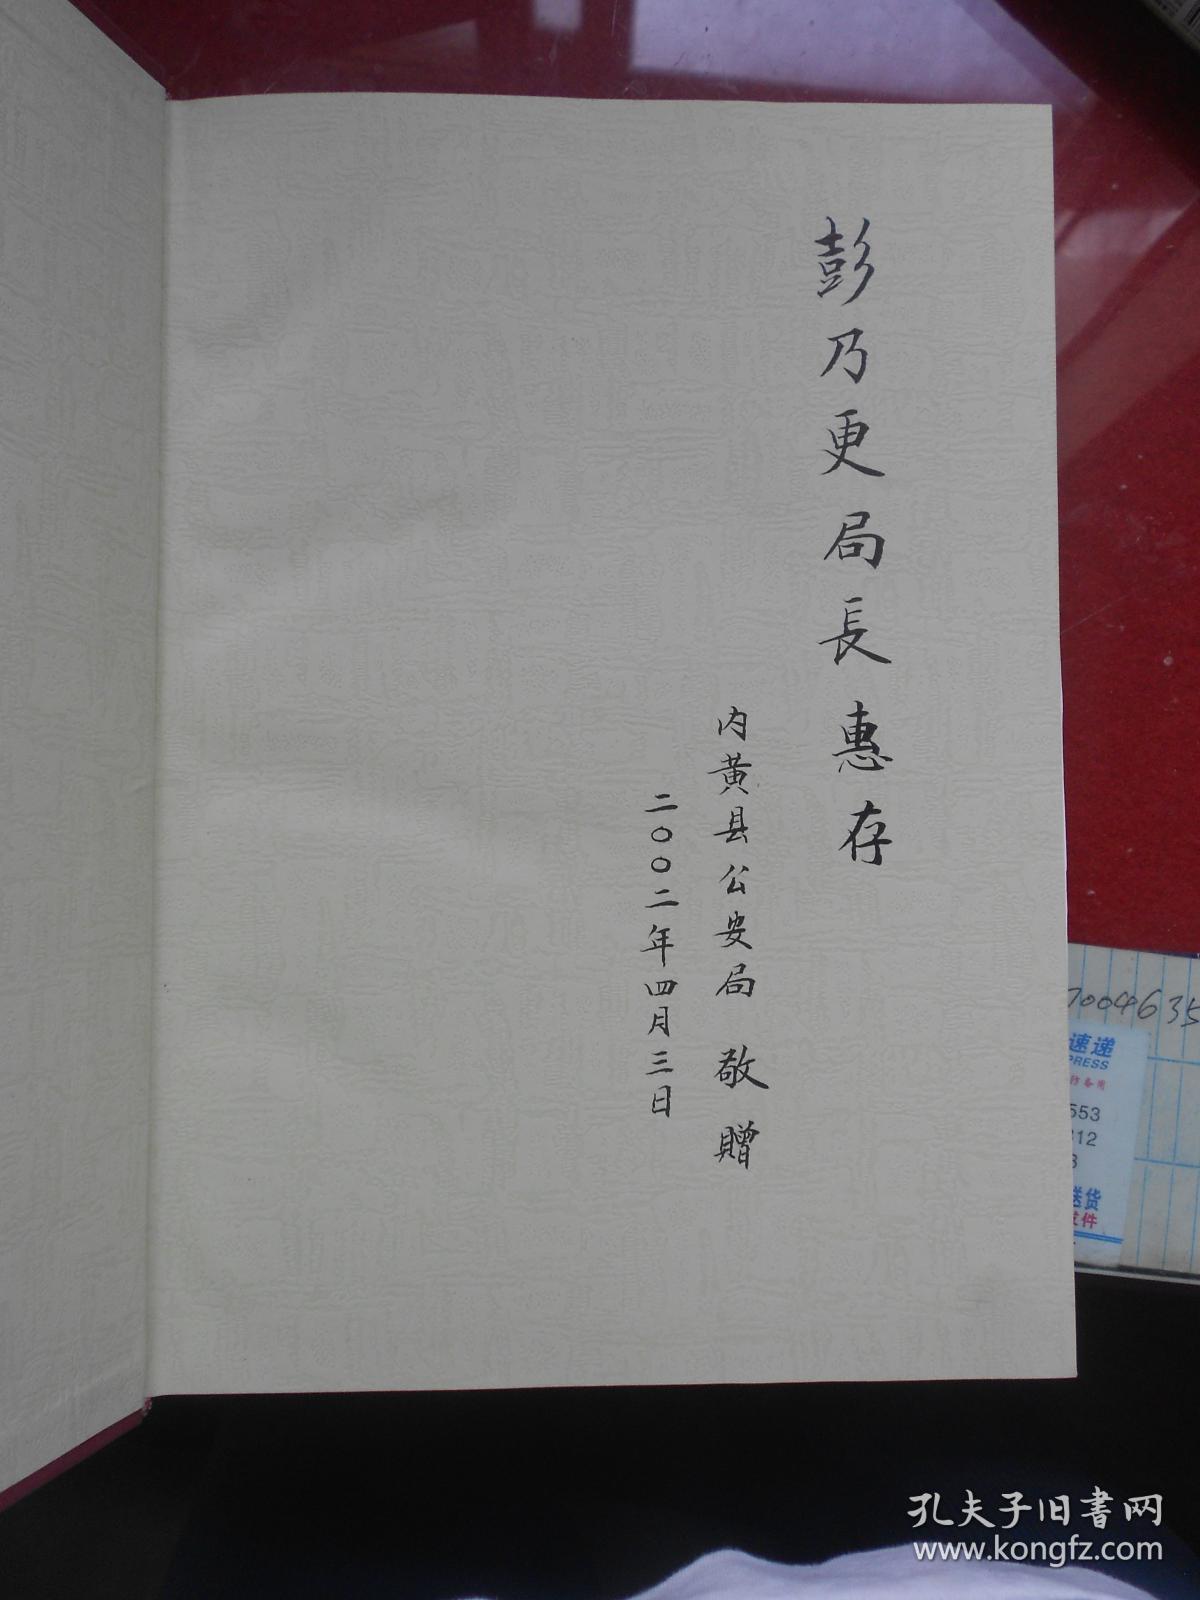 彭乃更局長惠存
内黄县公安局 敬贈
二〇〇二年四月三日
7004635
速递
PRESS
553
312
8
送货
件
孔夫子旧書网
www.kongfz.com